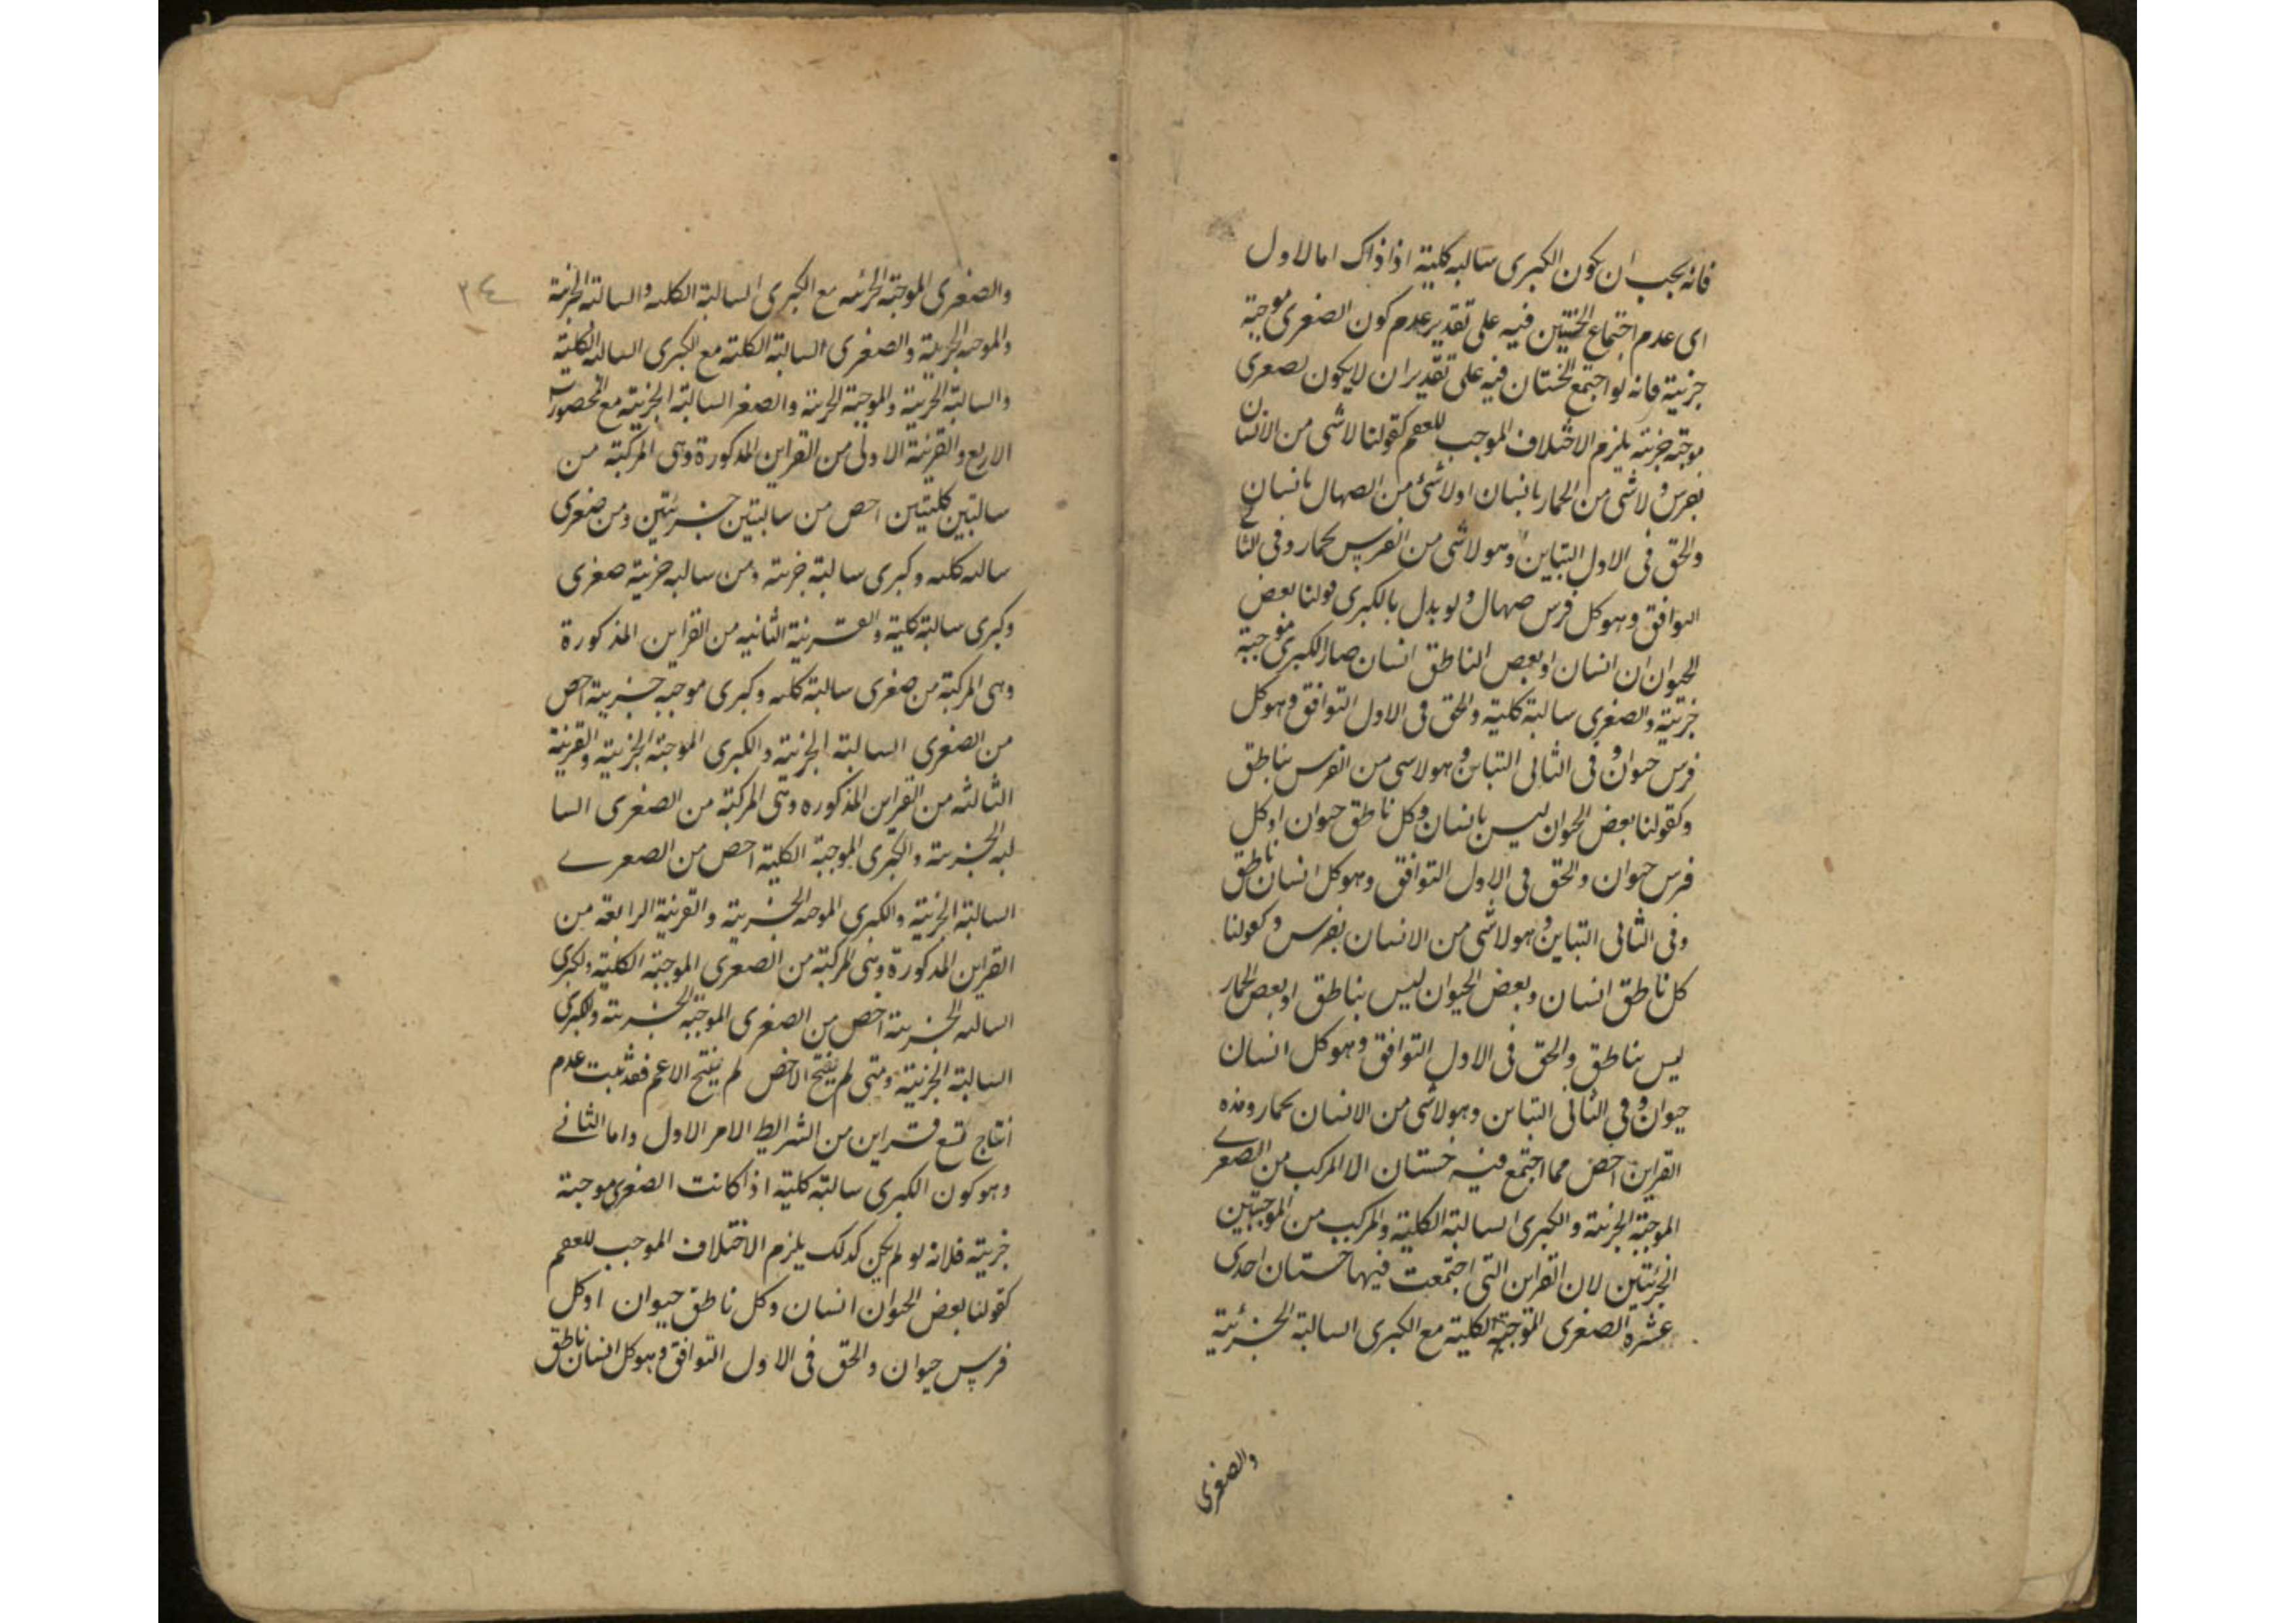 فانه يجب ان يكون الكبرى سالبه كلية اذ اذاك اما الاول
اى عدم اجتماع الخستين فيه على تقدير عدم كون الصغرى موجبة
جزئية فانه لو اجتمع الخستان فيه على تقدير ان لا يكون لصغرى
موجبة جزئية يلزم الاختلاف الموجب للعقم كقولنا لا شئ من الانسان
بفرس ولا شئ من الحمار بانسان او لا شئ من الصهال بانسان
والحق فى الاول التباين وهو لا شئ من الفرس بحمار وفى الثانى
التوافق وهو كل فرس صهال ولو بدل بالكبرى قولنا بعض
الحيوان ان انسان او بعض الناطق انسان صار الكبرى موجبة
جزئية والصغرى سالبة كلية والحق فى الاول التوافق وهو كل
فرس حيوان وفى الثانى التباين وهو لا شى من الفرس بناطق
وكقولنا بعض الحيوان ليس بانسان وكل ناطق حيوان او كل
فرس حيوان والحق فى الاول التوافق وهو كل انسان ناطق
وفى الثانى التباين وهو لا شئ من الانسان بفرس وكقولنا
كل ناطق انسان وبعض الحيوان ليس بناطق او بعض الحمار
ليس بناطق والحق فى الاول التوافق وهو كل انسان
حيوان وفى الثانى التباين وهو لا شئ من الانسان بحمار وهذه
القراين اخص مما اجتمع فيه خستان الا المركب من الصغرى
الموجبة الجزئية والكبرى السالبة الكلية والمركب من الموجبتين
الجزئيتين لان القراين التى اجتمعت فيها خستان احدى
عشره الصغرى الموجبة الكلية مع الكبرى السالبة الجزئية
والصغرى
٣٤
والصغرى الموجبة الجزئيه مع الكبرى السالبة الكليه والسالبة الجزئية
والموجبه الجزئية والصغرى السالبة الكلية مع الكبرى السالبة الكلية
والسالبة الجزئية والموجبة الجزئية والصغر السالبة الجزئية مع المحصورات
الاربع والقرينة الاولى من القراين المذكورة وهى المركبة من
سالبتين كليتين اخص من سالبتين جزئيتين ومن صغرى
سالبه كليه وكبرى سالبة جزئية ومن سالبه جزئية صغرى
وكبرى سالبة كلية والقرينة الثانيه من القراين المذكورة
وهى المركبة من صغرى سالبة كليه وكبرى موجبه جزئية اخص
من الصغرى السالبة الجزئية والكبرى الموجبة الجزئية والقرينة
الثالثه من القراين المذكوره وهى المركبة من الصغرى السا
لبه الجزئية والكبرى الموجبة الكلية اخص من الصغرى
السالبة الجزئية والكبرى الموجبه الجزئية والقرينة الرابعة من
القراين المذكورة وهى المركبة من الصغرى الموجبة الكلية والكبرى
السالبه الجزئية اخص من الصغرى الموجبة الجزئية والكبرى
السالبة الجزئية ومتى لم ينتج الاخص لم ينتج الاعم فقد ثبت عدم
انتاج تسع قراين من الشرايط الامر الاول واما الثانى
وهو كون الكبرى سالبة كلية اذا كانت الصغرى موجبة
جزئية فلانه لو لم يكن كذلك يلزم الاختلاف الموجب للعقم
كقولنا بعض الحيوان انسان وكل ناطق حيوان او كل
فرس حيوان والحق فى الاول التوافق وهو كل انسان ناطق